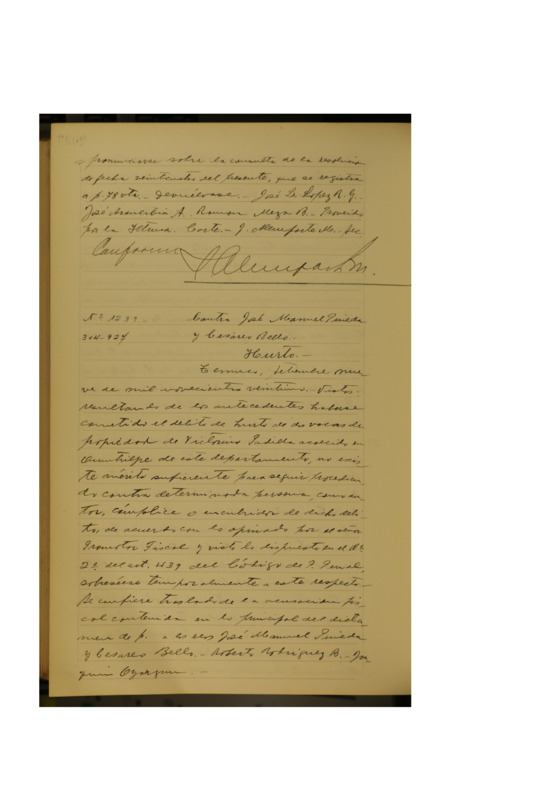 pronunciarse sobre la consulta de la resolucion
de fecha veinticuatro del presente, que se registra
a f. 78 vta. - Devuélvase. - José L. Lopez R. G. -
José A. - Ramon Meza B. - Proveido
por la Iltma. Corte. - J. Alemparte M. - Sec.
Conforme
J Alemparte M.
No. 1239. Contra José Manuel Pineda
304-927 y Cesareo Bello. -
Hurto. -
Temuco, Setiembre nue-
ve de mil novecientos veintiuno. - Vistos:
resultando de los antecedentes haberse
cometido el delito de hurto de dos vacas de
propiedad de Victorino Padilla acaecido en
de este departamento, no exis-
te mérito suficiente para seguir procedien-
do contra determinada persona, como au-
tor, cómplice o encubridor de dicho deli-
to, de acuerdo con lo opinado por el señor
Promotor Fiscal y visto lo dispuesto en el No.
2o. del art. 439 del Código de P. Penal,
sobreséese temporalmente a este respecto. -
Se confiere traslado de la acusacion fis-
cal contenida en lo principal del dicta-
men de f. a los reos José Manuel Pineda
y Cesareo Bello. - Roberto Rodriguez B. - Joa-
quin Oyarzun